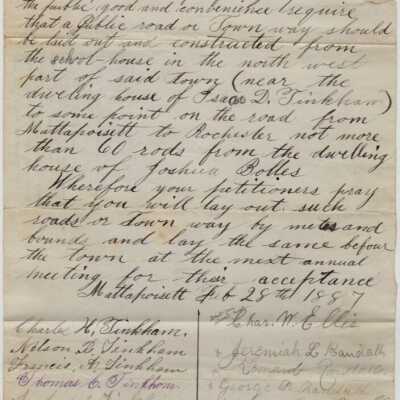 the public good and convenience require
that a public road or Town way should
be laid out and constructed from
the scool-house in the north west
part of said town (near the
dweling house of Isaac D. Tinkham)
to some point on the road from
Mattapoisett to Rochester not more
than 60 rods from the dwelling
house of Joshua Bolles
Wherefore your petitioners pray
that you will lay out such
roads or town way by metes and
bounds and lay the same befour
the town at the next annual
meeting for their acceptance
Mattapoisett Feb 28th 1887
Charls H. Tinkham.
Nilson D. Tinkham
Francis. A. Tinkham
Thomas C. Tinkham
Char. W. Ellis
Jeremiah L Randall
George